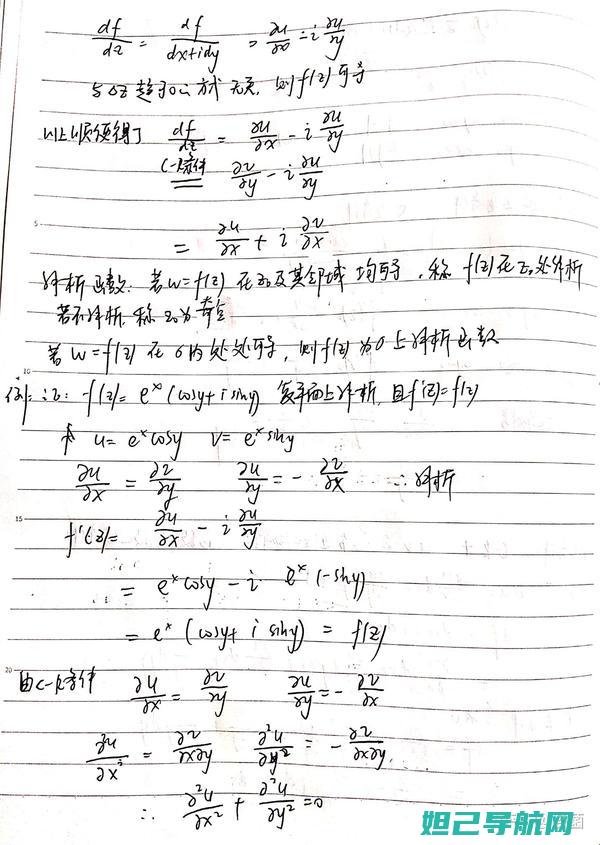 df/dz = df/dx+idy = ∂u/∂x - i ∂u/∂y
与Δz趋于0的方式无关, 则f(z)可导
以上顺便得了 df/dz = ∂u/∂x - i ∂u/∂y
C-R条件 ∂v/∂y - i ∂u/∂y
5
= ∂u/∂x + i ∂v/∂x
解析函数: 若w=f(z) 在z₀及其邻域 均可导, 称 f(z)在z₀处解析
若不解析, 称z₀为奇点
若 w=f(z) 在σ内处处可导, 则f(z)为σ上解析函数
10
例: 证: f(z)= eˣ(cosy+i siny) 复平面上解析, 且f'(z)=f(z)
u= eˣcosy v= eˣsiny
∂u/∂x = ∂v/∂y ∂u/∂y = - ∂v/∂x ∴解析
15
f'(z)= ∂u/∂x - i ∂u/∂y
= eˣcosy - i eˣ(-siny)
= eˣ(cosy+ i siny) = f(z)
20
由C-R条件 ∂u/∂x = ∂v/∂y ∂u/∂y = - ∂v/∂x
∂²u/∂x² = ∂v/∂x∂y ∂²u/∂y² = - ∂v/∂x∂y.
∴ ∂²u/∂x² + ∂²u/∂y² =0
妲己导航网